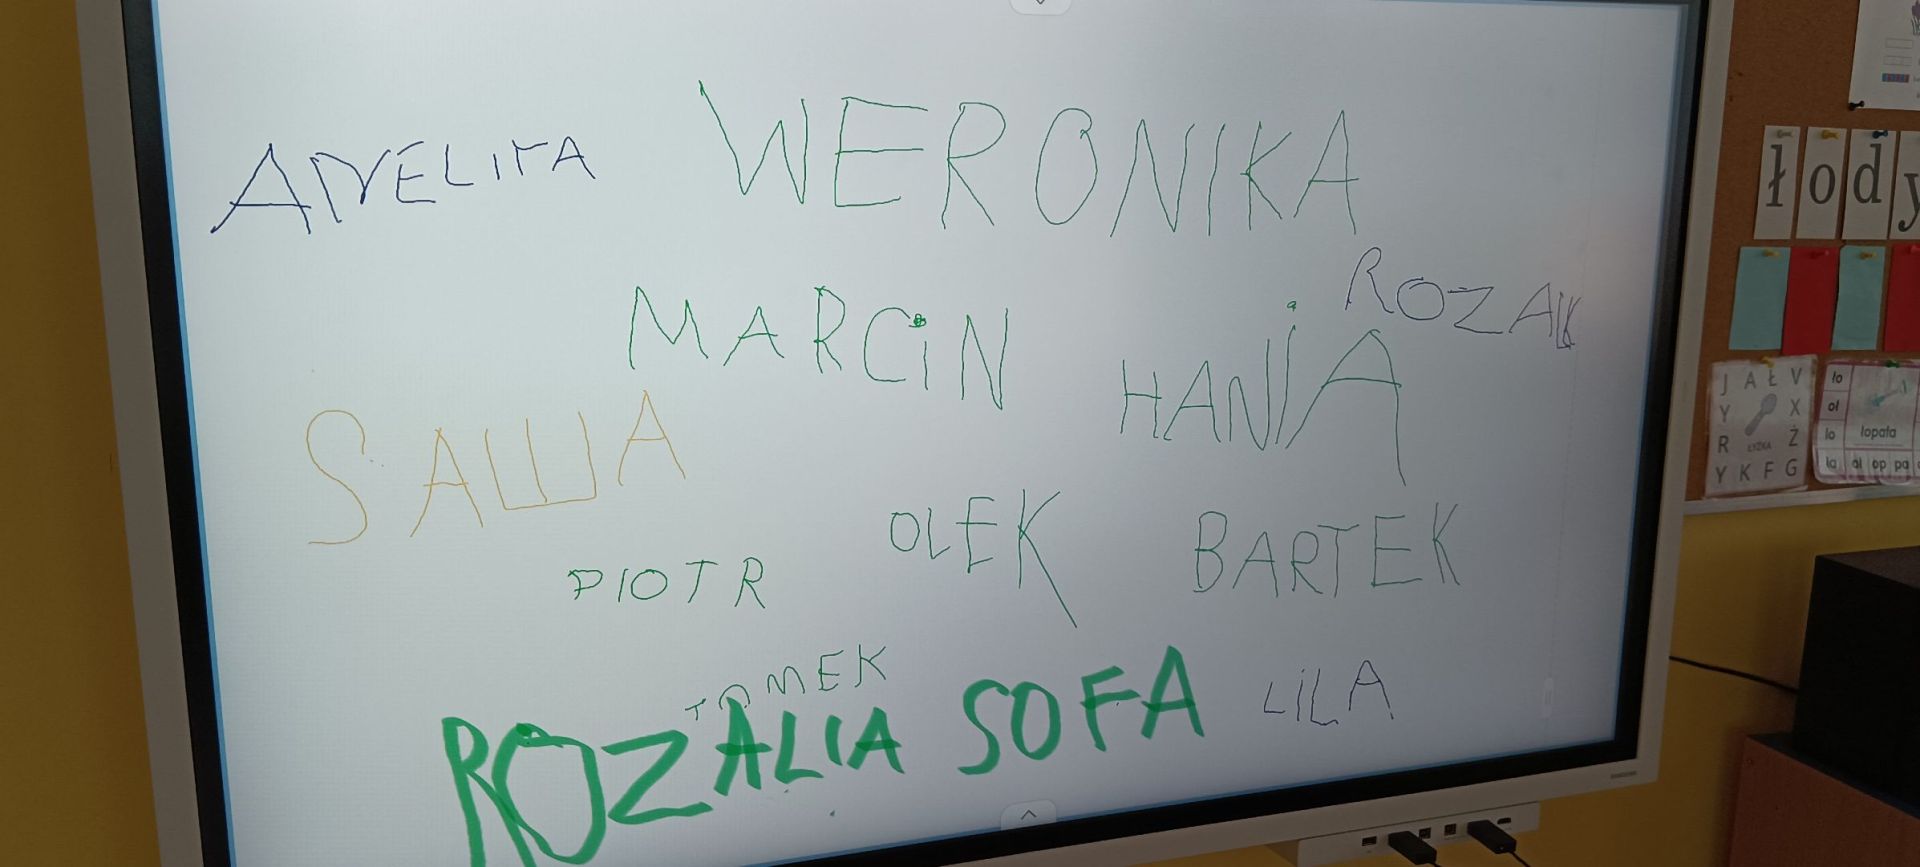 WERONIKA
ROZALK
MARCiN
HANiA
SAШA
OLEK
BARTEK
PIOTR
TOMEK
ROZALIA SOFA
LiLA
ł o d y
J A Ł V
Y X
R Ż
ŁYŻKA
Y K F G
ło
oł
lo
łopata
ła al op pa
SAMSUNG